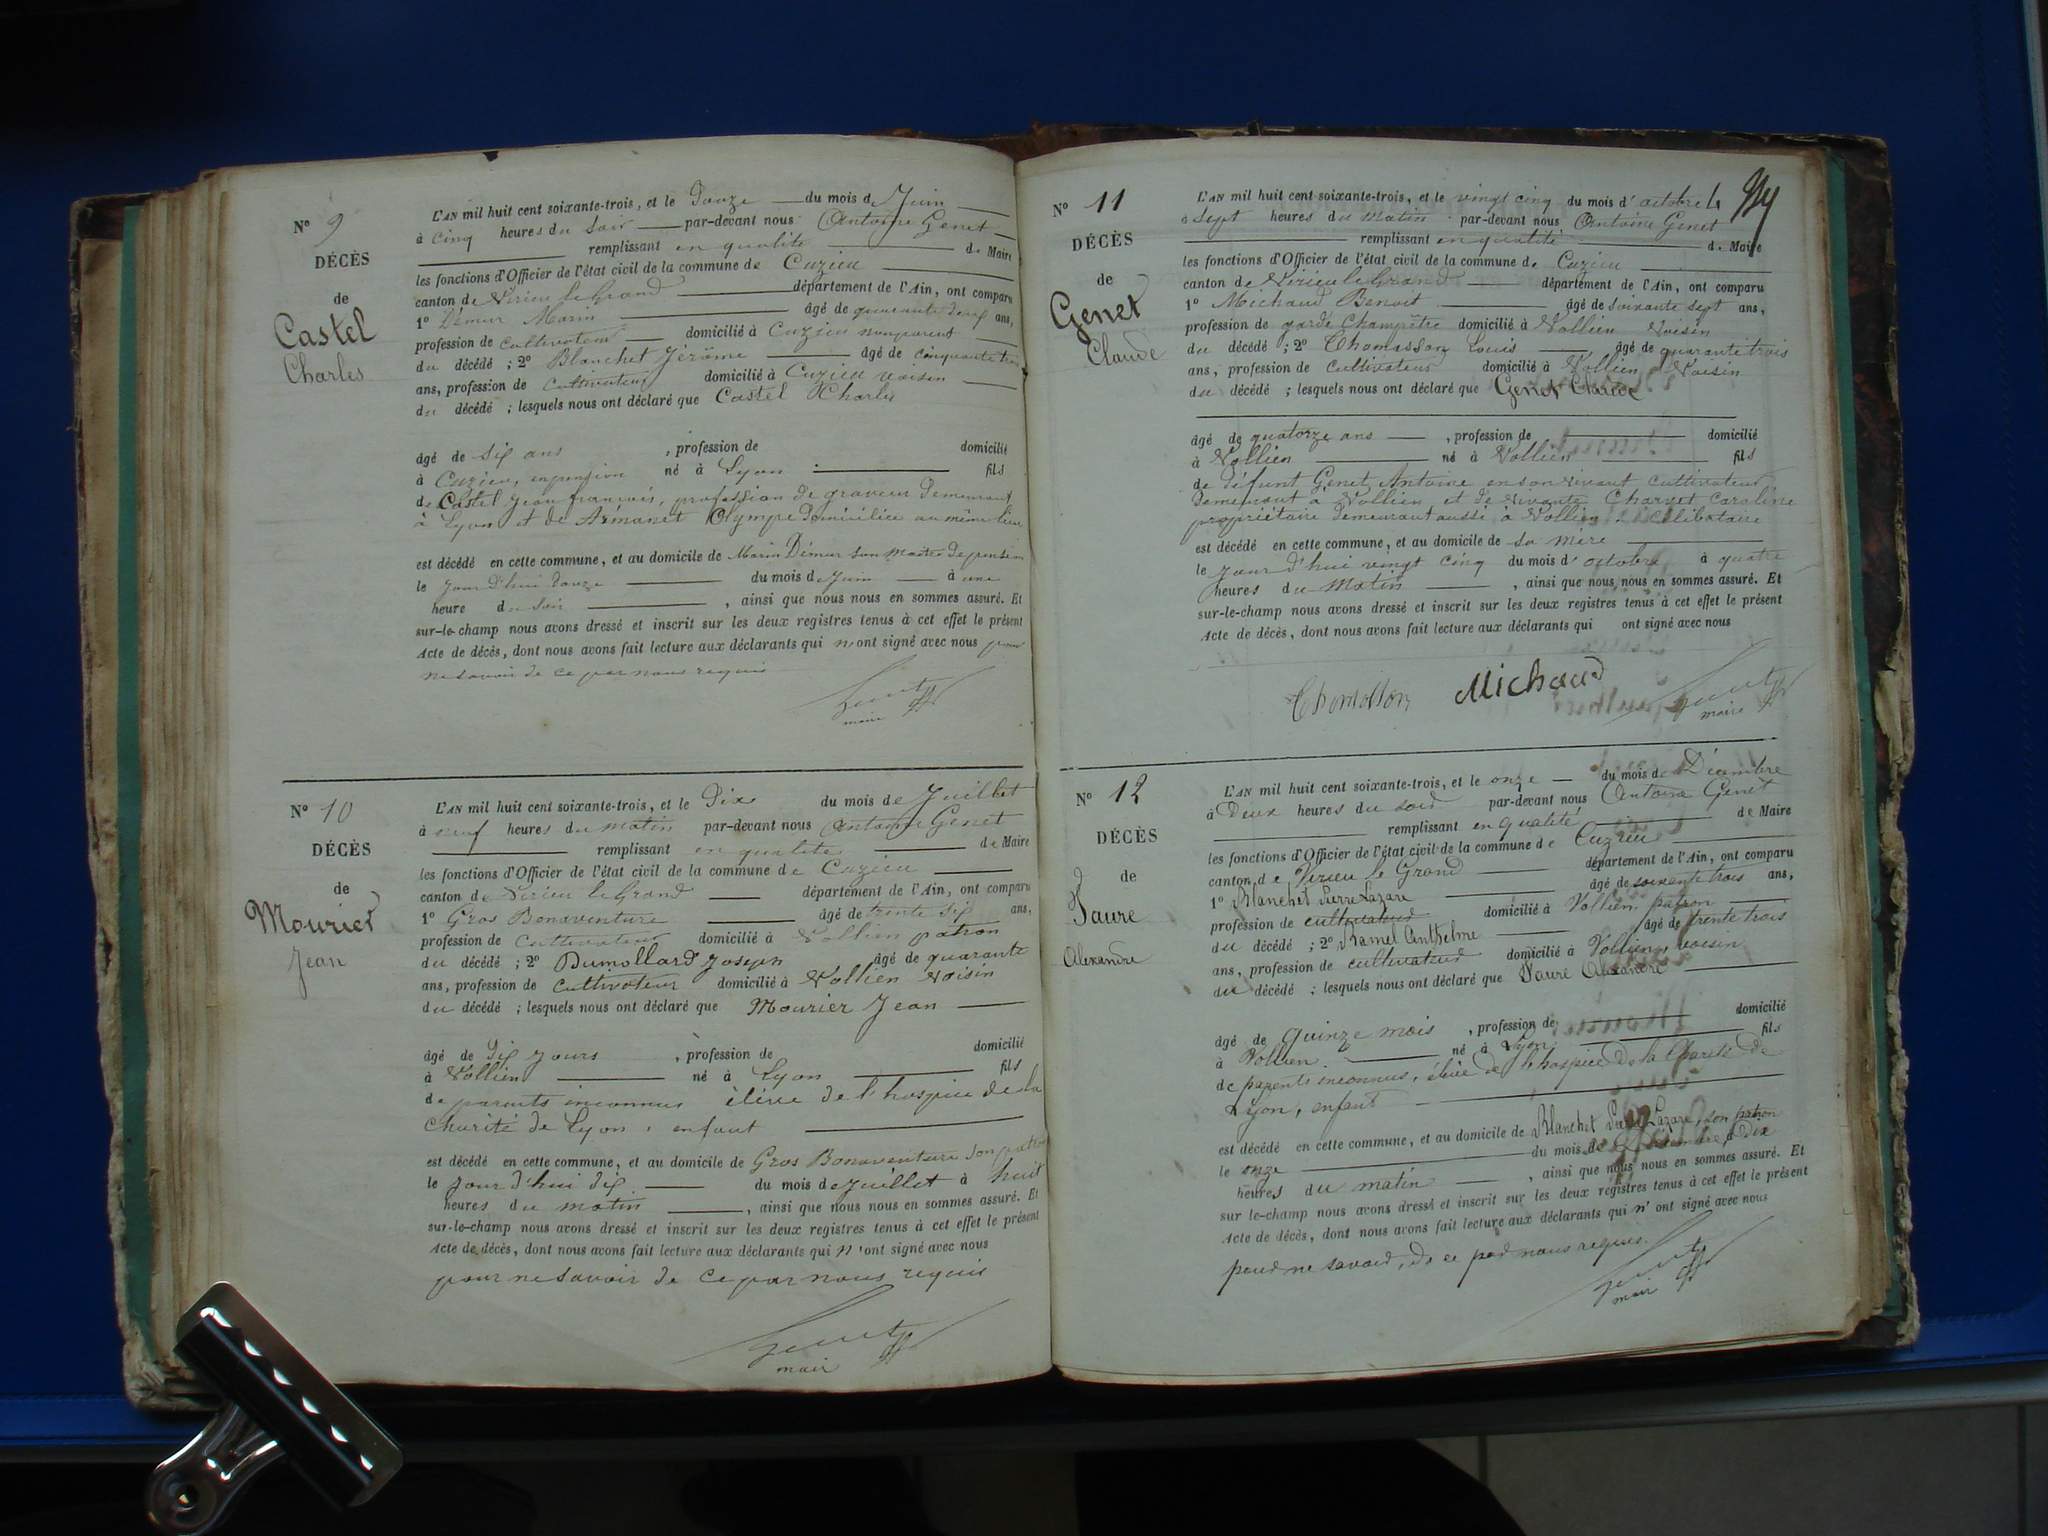 N° 9
DÉCÈS
de
Castel
Charles
L'AN mil huit cent soixante-trois, et le Douze du mois de Juin
à cinq heures du Soir par-devant nous Antoine Genet
remplissant en qualité de Maire
les fonctions d'Officier de l'état civil de la commune de Cuzieu
canton de Virieu le Grand département de l'Ain, ont comparu
1° Démur Marin âgé de quarante neuf ans,
profession de cultivateur domicilié à Cuzieu non parent
du décédé ; 2° Blanchet Jérôme âgé de cinquante trois
ans, profession de cultivateur domicilié à Cuzieu voisin
du décédé ; lesquels nous ont déclaré que Castel Charles
âgé de six ans , profession de domicilié
à Cuzieu, en pension né à Lyon fils
de Castel Jean françois, profession de graveur demeurant
à Lyon et de Armanet Olympe domiciliée au même lieu
est décédé en cette commune, et au domicile de Marin Démur son maître de pension
le jour d'hui douze du mois de Juin à une
heure du Soir , ainsi que nous nous en sommes assuré. Et
sur-le-champ nous avons dressé et inscrit sur les deux registres tenus à cet effet le présent
Acte de décès, dont nous avons fait lecture aux déclarants qui n'ont signé avec nous pour
ne savoir de ce par nous requis
Genet
maire
N° 10
DÉCÈS
de
Mourier
Jean
L'AN mil huit cent soixante-trois, et le Dix du mois de Juillet
à neuf heures du matin par-devant nous Antoine Genet
remplissant en qualité de Maire
les fonctions d'Officier de l'état civil de la commune de Cuzieu
canton de Virieu le Grand département de l'Ain, ont comparu
1° Gros Bonaventure âgé de trente six ans,
profession de cultivateur domicilié à Vollien patron
du décédé ; 2° Dumollard Joseph âgé de quarante
ans, profession de cultivateur domicilié à Vollien Voisin
du décédé ; lesquels nous ont déclaré que Mourier Jean
âgé de dix jours , profession de domicilié
à Vollien né à Lyon fils
de parents inconnus élève de l'hospice de la
Charité de Lyon, enfant
est décédé en cette commune, et au domicile de Gros Bonaventure son patron
le jour d'hui dix du mois de Juillet à huit
heures du matin , ainsi que nous nous en sommes assuré. Et
sur-le-champ nous avons dressé et inscrit sur les deux registres tenus à cet effet le présent
Acte de décès, dont nous avons fait lecture aux déclarants qui n'ont signé avec nous
pour ne savoir de ce par nous requis
Genet
mair
N° 11
DÉCÈS
de
Genet
Claude
L'AN mil huit cent soixante-trois, et le vingt cinq du mois d'octobre
à Sept heures du matin par-devant nous Antoine Genet
remplissant en qualité de Maire
les fonctions d'Officier de l'état civil de la commune de Cuzieu
canton de Virieu le Grand département de l'Ain, ont comparu
1° Michaud Benoit âgé de soixante sept ans,
profession de garde Champêtre domicilié à Vollien Voisin
du décédé ; 2° Thomasson Louis âgé de quarante trois
ans, profession de cultivateur domicilié à Vollien Voisin
du décédé ; lesquels nous ont déclaré que Genet Claude
âgé de quatorze ans , profession de domicilié
à Vollien né à Vollien fils
de défunt Genet Antoine en son vivant cultivateur
demeurant à Vollien et de vivante Charvet Caroline
propriétaire demeurant aussi à Vollien célibataire
est décédé en cette commune, et au domicile de sa mère
le jour d'hui vingt cinq du mois d'octobre à quatre
heures du matin , ainsi que nous nous en sommes assuré. Et
sur-le-champ nous avons dressé et inscrit sur les deux registres tenus à cet effet le présent
Acte de décès, dont nous avons fait lecture aux déclarants qui ont signé avec nous
Thomasson Michaud Genet
maire
N° 12
DÉCÈS
de
Faure
Alexandre
L'AN mil huit cent soixante-trois, et le onze du mois de Décembre
à Deux heures du soir par-devant nous Antoine Genet
remplissant en qualité de Maire
les fonctions d'Officier de l'état civil de la commune de Cuzieu
canton de Virieu le Grand département de l'Ain, ont comparu
1° Blanchet Pierre Lazare âgé de soixante trois ans,
profession de cultivateur domicilié à Vollien, patron
du décédé ; 2° Ramel Anthelme âgé de trente trois
ans, profession de cultivateur domicilié à Vollien, voisin
du décédé ; lesquels nous ont déclaré que Faure Alexandre
âgé de quinze mois , profession de domicilié
à Vollien né à Lyon fils
de parents inconnus, élève de l'hospice de la Charité de
Lyon, enfant
est décédé en cette commune, et au domicile de Blanchet Pierre Lazare, son patron
le onze du mois de Décembre à Dix
heures du matin , ainsi que nous nous en sommes assuré. Et
sur le-champ nous avons dressé et inscrit sur les deux registres tenus à cet effet le présent
Acte de décès, dont nous avons fait lecture aux déclarants qui n'ont signé avec nous
pour ne savoir, de ce par nous requis.
Genet
mair